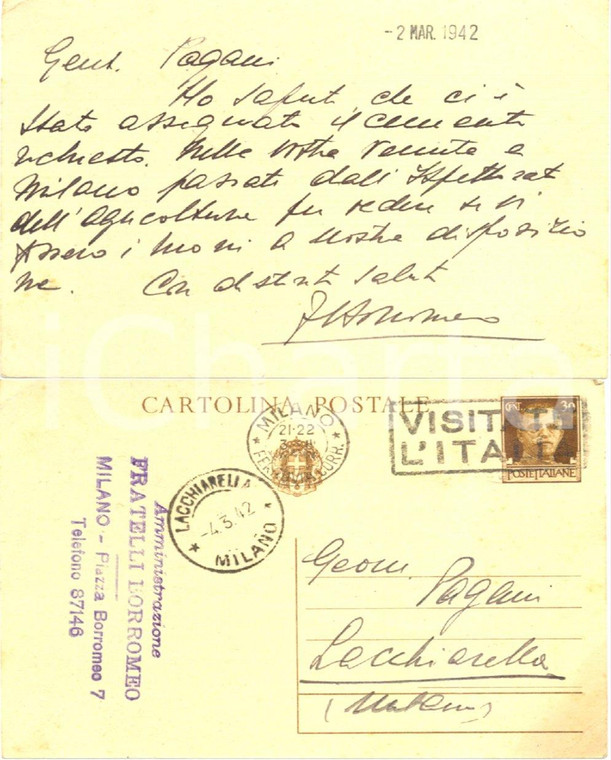 -2 MAR. 1942
Gent. Pagani
Ho saputo che ci è
stato assegnato il cemento
richiesto. Nella vostra venuta a
Milano passate dall'Ispettorato
dell'agricoltura per vedere se vi
fossero i buoni a nostra disposizio
ne. Con distinti saluti
Borromeo
iCharta
CARTOLINA POSTALE
MILANO
21-22
FERROVIA CORR.
VISITATE
L'ITALIA
30
POSTE ITALIANE
LACCHIARELLA
-4.3.42
MILANO
Amministrazione
FRATELLI BORROMEO
MILANO - Piazza Borromeo 7
Telefono 87146
Geom
Pagani
Lacchiarella
(Milano)